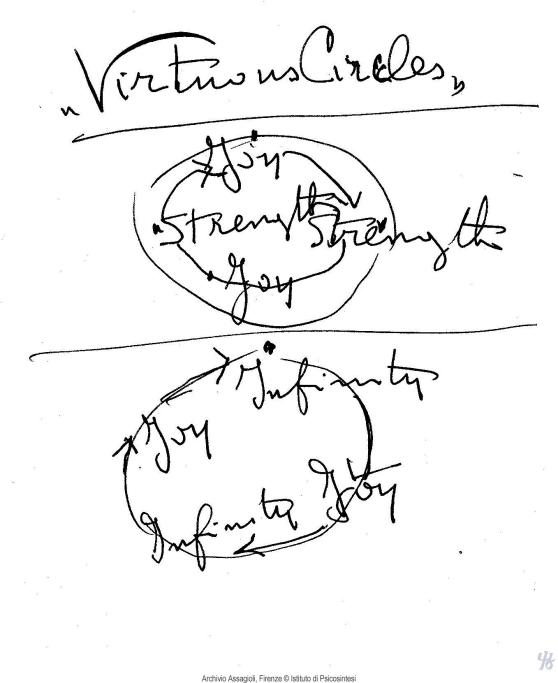 "Virtuous Circles"
Joy
Strength Strength
Joy
Infinity
Joy
Infinity Joy
Archivio Assagioli, Firenze © Istituto di Psicosintesi